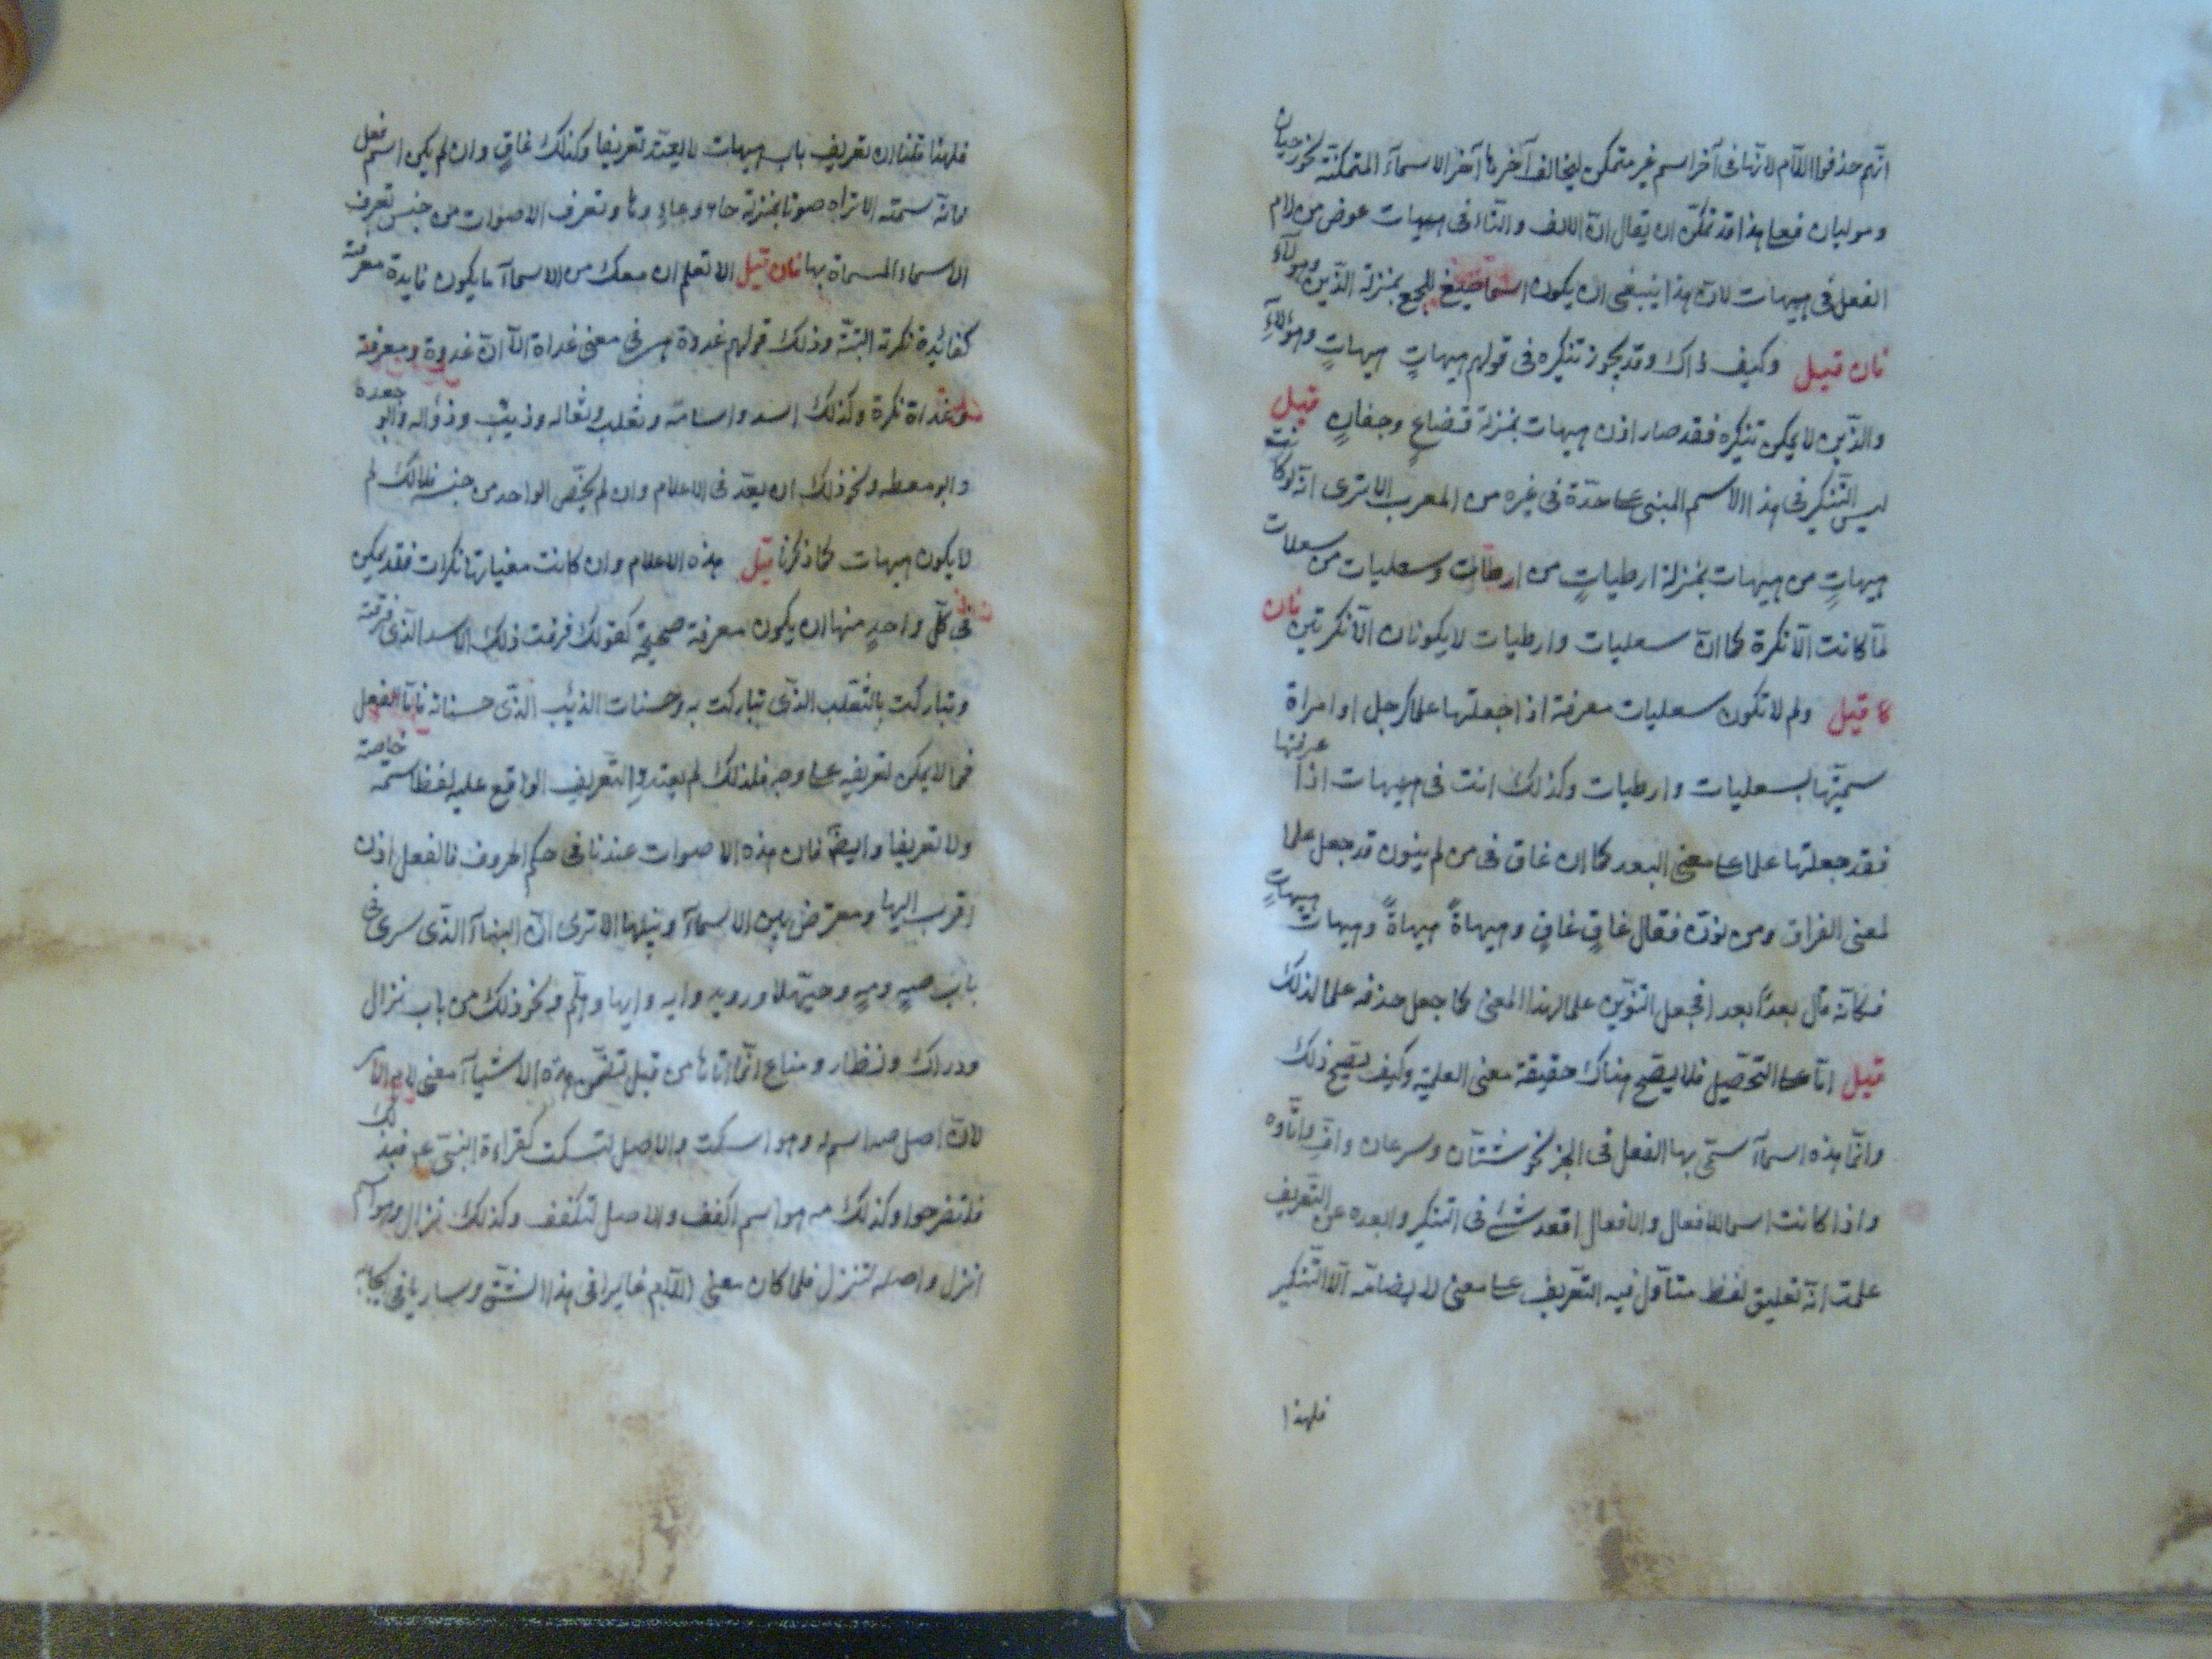 انّهم حذفوا اللّام لانّها فى آخر اسم غير متمكن ليخالف آخرها آخر الاسمآء المتمكنة نحو رحيان
وموليان فعلى هذا قد يمكن ان يقال انّ الالف والتاء فى هيهات عوض من لام
الفعل فى هيهات لانّ هذا ينبغى ان يكون اسما صيغ للجمع بمنزلة الّذين وهؤلآء
فان قيل وكيف ذاك وقد يجوز تنكيره فى قولهم هيهاتٍ هيهاتٍ وهؤلآءِ
والذّين لا يمكن تنكيره فقد صار اذن هيهات بمنزلة قصاعٍ وجفانٍ قيل
ليس التّنكير فى هذا الاسم المبنى على حدّه فى غيره من المعرب الا ترى انّه لو كانت
هيهاتٍ من هيهات بمنزلة ارطياتٍ من ارطآت وسعليات من سعلات
لمّا كانت الّا نكرة كما انّ سعليات وارطيات لا يكونان الّا نكرتين فان
قيل ولم لا تكون سعليات معرفة اذا جعلتها علما كرجل او امراة
سميّتها بسعليات وارطيات وكذلك انت فى هيهات اذا عرفتها
فقد جعلتها علما على معنى البعد كما ان غاق فى من لم ينون قد جعل علما
لمعنى الفراق ومن نوّن فقال غاقٍ غاقٍ وهيهاةً هيهاةً وهيهات هيهاتٍ
فكانّه قال بعداً بعدا فجعل التنوّين علما لهذا المعنى كما جعل حذفه علما لذلك
قيل امّا على التحّصيل فلا يصح هناك حقيقة معنى العلميّة وكيف يصّح ذلك
وانّما هذه اسمآء سمّى بها الفعل فى الخبر نحو شتّان وسرعان وافّ وانّاوه
واذا كانت اسما للافعال والافعال اقعد شئ فى التنكير وابعده عن التّعريف
علمت انّه تعليق لفظ متأوّل فيه التعّريف على معنى لا يضامّه الّا التّنكير
فلهذا
فلهذا قلنا ان تعريف باب هيهات لا يعتدّ تعريفا وكذلك غاقٍ وان لم يكن اسم فعل
فانّه سمته الا تراه صوتا بمنزلة حاء وعاء وها وتعرف الاصوات من جنس تعرف
الاسماء المسماة بها فان قيل الا تعلم ان معك من الاسمآء ما يكون فايدة معرفة
كفائدة نكرته البتّة وذلك قولهم غدوة هى فى معنى غداة الّا انّ غدوة معرفة
وغداة نكرة وكذلك اسد واسامة وثعلب وثعاله وذيب وذؤاله وابو جعده
وابو معطه ونحو ذلك ان يعدّ فى الاعلام وان لم يخصّ الواحد من جنسه فلذلك لم
لا يكون هيهات كما ذكرنا قيل هذه الاعلام وان كانت معنياتها نكرات فقد يمكن
فى كلّ واحدٍ منها ان يكون معرفة صحيحة كقولك فرقت ذلك الاسد الّذى فرقته
وتباركت بالثّعلب الذّى تباركت به وحسنات الذيب الذّى حسناته فامّا الفعل
فمّا لا يمكن تعريفه على وجه فلذلك لم يعتدّوا التّعريف الواقع عليه لفظا سمة خاصة
ولا تعريفا وايضّا فان هذه الاصوات عندنا فى حكم الحروف فالفعل اذن
اقرب اليها ومعترض بين الاسمآء وبينها الا ترى انّ البنآء الّذى سرى فى
باب صهٍ ومهٍ وحيّهلا ورويد وايه وايها وهلّم ونحو ذلك من باب نزال
ودراك ونظار ومناع انمّا اتاها من قبل تضمّن هذه الاشيآء معنى لام الامر
لانّ اصل صه اسم له وهو اسكت والاصل لتسكت كقراءة النبّى عم فبذلك
فلتفرحوا وكذلك مه هو اسم اكفف والاصل لتكفف وكذلك نزال وهو اسم
انزل واصله لتنزل فلما كان معنى اللّام غايرا فى هذا الشّق وسايريا فى